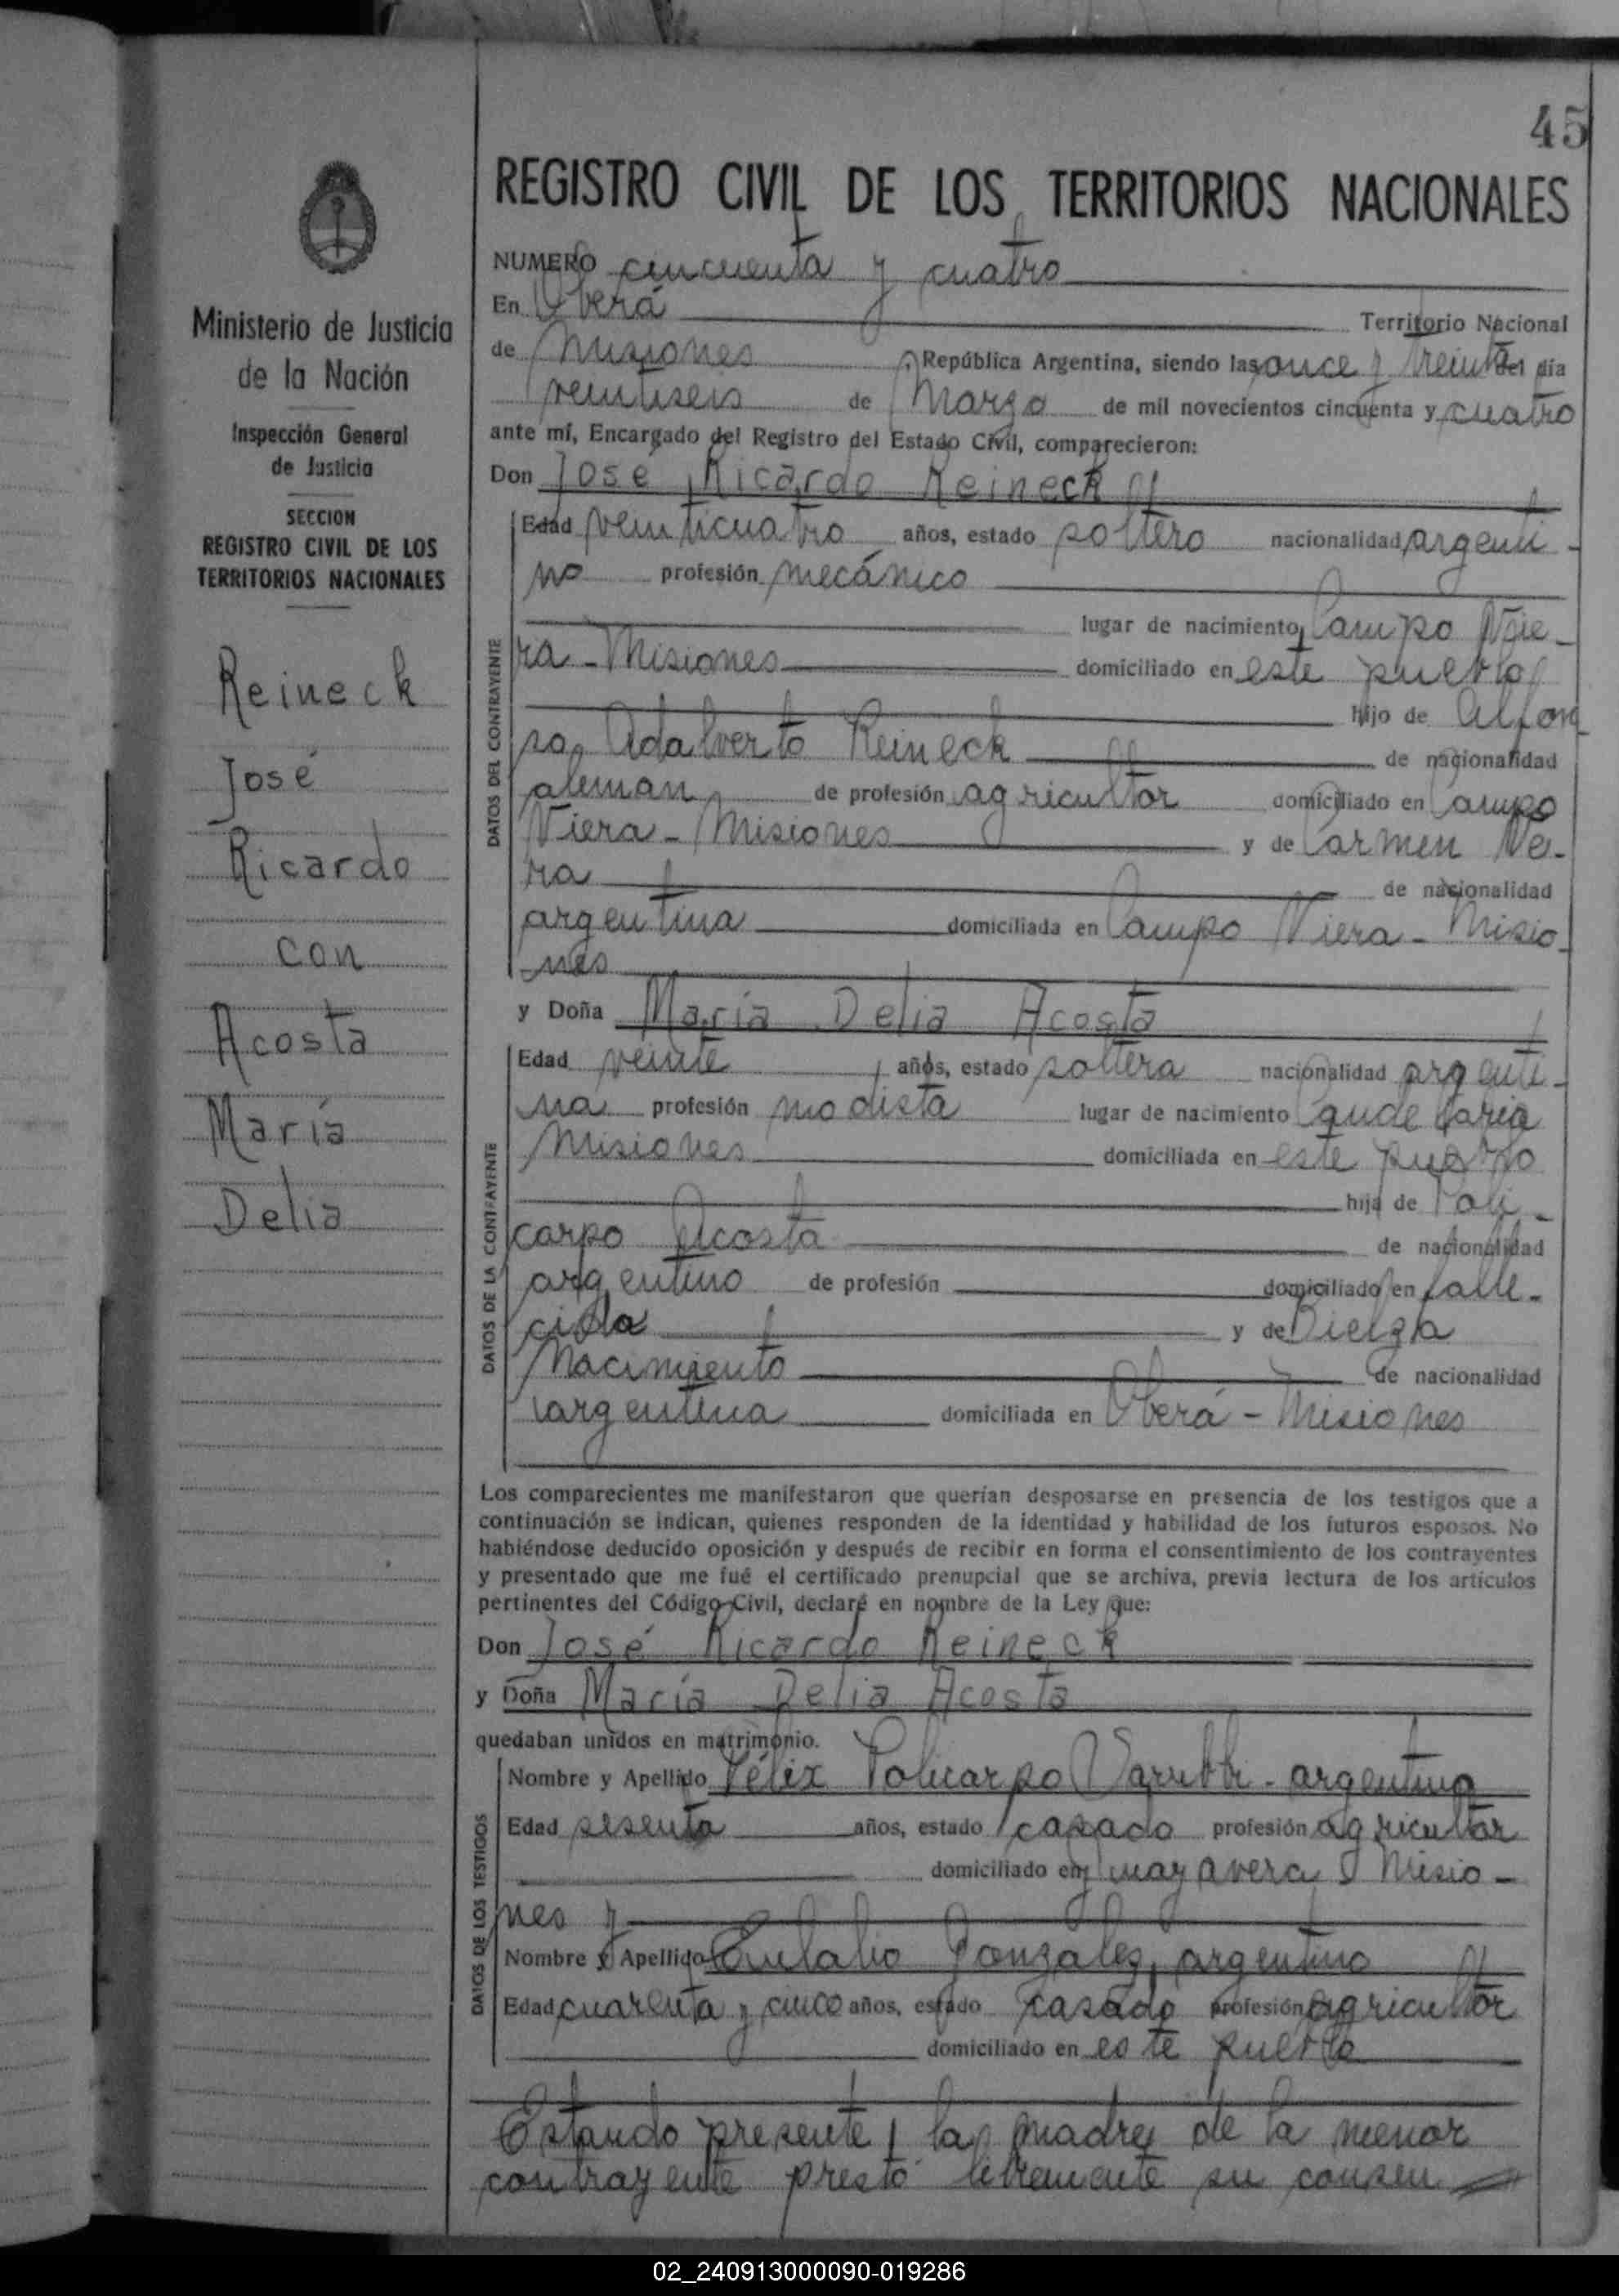 45
REGISTRO CIVIL DE LOS TERRITORIOS NACIONALES
Ministerio de Justicia
de la Nación
Inspección General
de Justicia
SECCION
REGISTRO CIVIL DE LOS
TERRITORIOS NACIONALES
Reineck
José
Ricardo
con
Acosta
María
Delia
NUMERO cincuenta y cuatro
En Oberá Territorio Nacional
de Misiones, República Argentina, siendo las once y treinta del día
veintiseis de Marzo de mil novecientos cincuenta y cuatro
ante mí, Encargado del Registro del Estado Civil, comparecieron:
Don José Ricardo Reineck
DATOS DEL CONTRAYENTE
Edad veinticuatro años, estado soltero nacionalidad argenti-
no profesión mecánico
lugar de nacimiento Campo Vie-
ra - Misiones domiciliado en este pueblo
hijo de Alfon
so Adalverto Reineck de nacionalidad
aleman de profesión agricultor domiciliado en Campo
Viera - Misiones y de Carmen
ra de nacionalidad
argentina domiciliada en Campo Viera - Misio-
nes
y Doña María Delia Acosta
DATOS DE LA CONTRAYENTE
Edad veinte años, estado soltera nacionalidad argenti-
na profesión modista lugar de nacimiento Candelaria
Misiones domiciliada en este pueblo
hija de Poli-
carpo Acosta de nacionalidad
argentino de profesión domiciliado en falle-
cido y de
Nacimiento de nacionalidad
argentina domiciliada en Oberá - Misiones
Los comparecientes me manifestaron que querían desposarse en presencia de los testigos que a
continuación se indican, quienes responden de la identidad y habilidad de los futuros esposos. No
habiéndose deducido oposición y después de recibir en forma el consentimiento de los contrayentes
y presentado que me fué el certificado prenupcial que se archiva, previa lectura de los artículos
pertinentes del Código Civil, declaré en nombre de la Ley que:
Don José Ricardo Reineck
y Doña María Delia Acosta
quedaban unidos en matrimonio.
DATOS DE LOS TESTIGOS
Nombre y Apellido Félix Policarpo - argentino
Edad sesenta años, estado casado profesión agricultor
domiciliado en Misio-
nes y
Nombre y Apellido Eulalio Gonzalez, argentino
Edad cuarenta y cinco años, estado casado profesión agricultor
domiciliado en este pueblo
Estando presente la madre de la menor
contrayente prestó libremente su consen
02_240913000090-019286